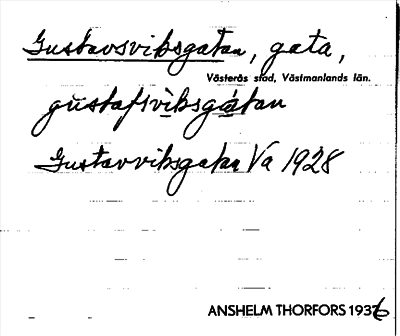 Gustavsviksgatan, gata,
Västerås stad, Västmanlands län.
gùstafsvìksgá̀tan
Gustavviksgatan Va 1928
ANSHELM THORFORS 1936